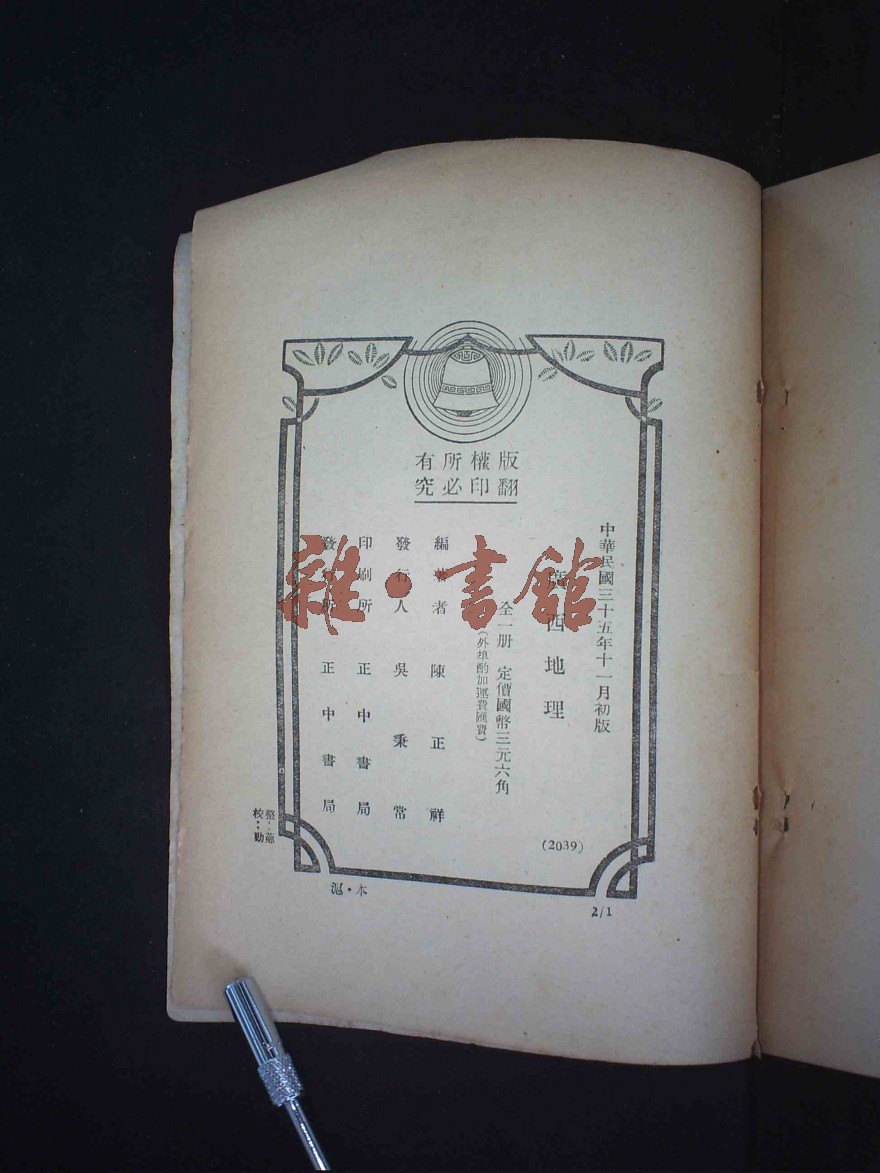 版權所有
翻印必究
中華民國三十五年十一月初版
廣西地理
全一册 定價國幣三元六角
(外埠酌加運費匯費)
編著者 陳正祥
發行人 吳秉常
印刷所 正中書局
發行所 正中書局
(2039)
校：勤
滬·本
2/1
雜·書館